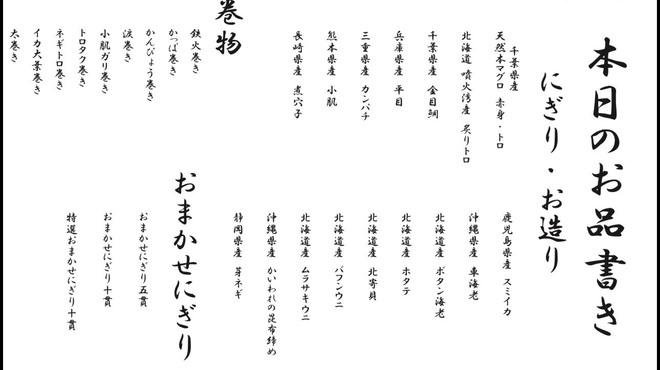 本日のお品書き
にぎり・お造り
千葉県産
天然本マグロ 赤身・トロ
北海道 噴火湾産 炙りトロ
千葉県産 金目鯛
兵庫県産 平目
三重県産 カンパチ
熊本県産 小肌
長崎県産 煮穴子
鹿児島県産 スミイカ
沖縄県産 車海老
北海道産 ボタン海老
北海道産 ホタテ
北海道産 北寄貝
北海道産 バフンウニ
北海道産 ムラサキウニ
沖縄県産 かいわれの昆布締め
静岡県産 芽ネギ
巻物
鉄火巻き
かっぱ巻き
かんぴょう巻き
涙巻き
小肌ガリ巻き
トロタク巻き
ネギトロ巻き
イカ大葉巻き
太巻き
おまかせにぎり
おまかせにぎり五貫
おまかせにぎり十貫
特選おまかせにぎり十貫